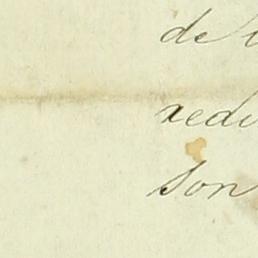 de
redu
son